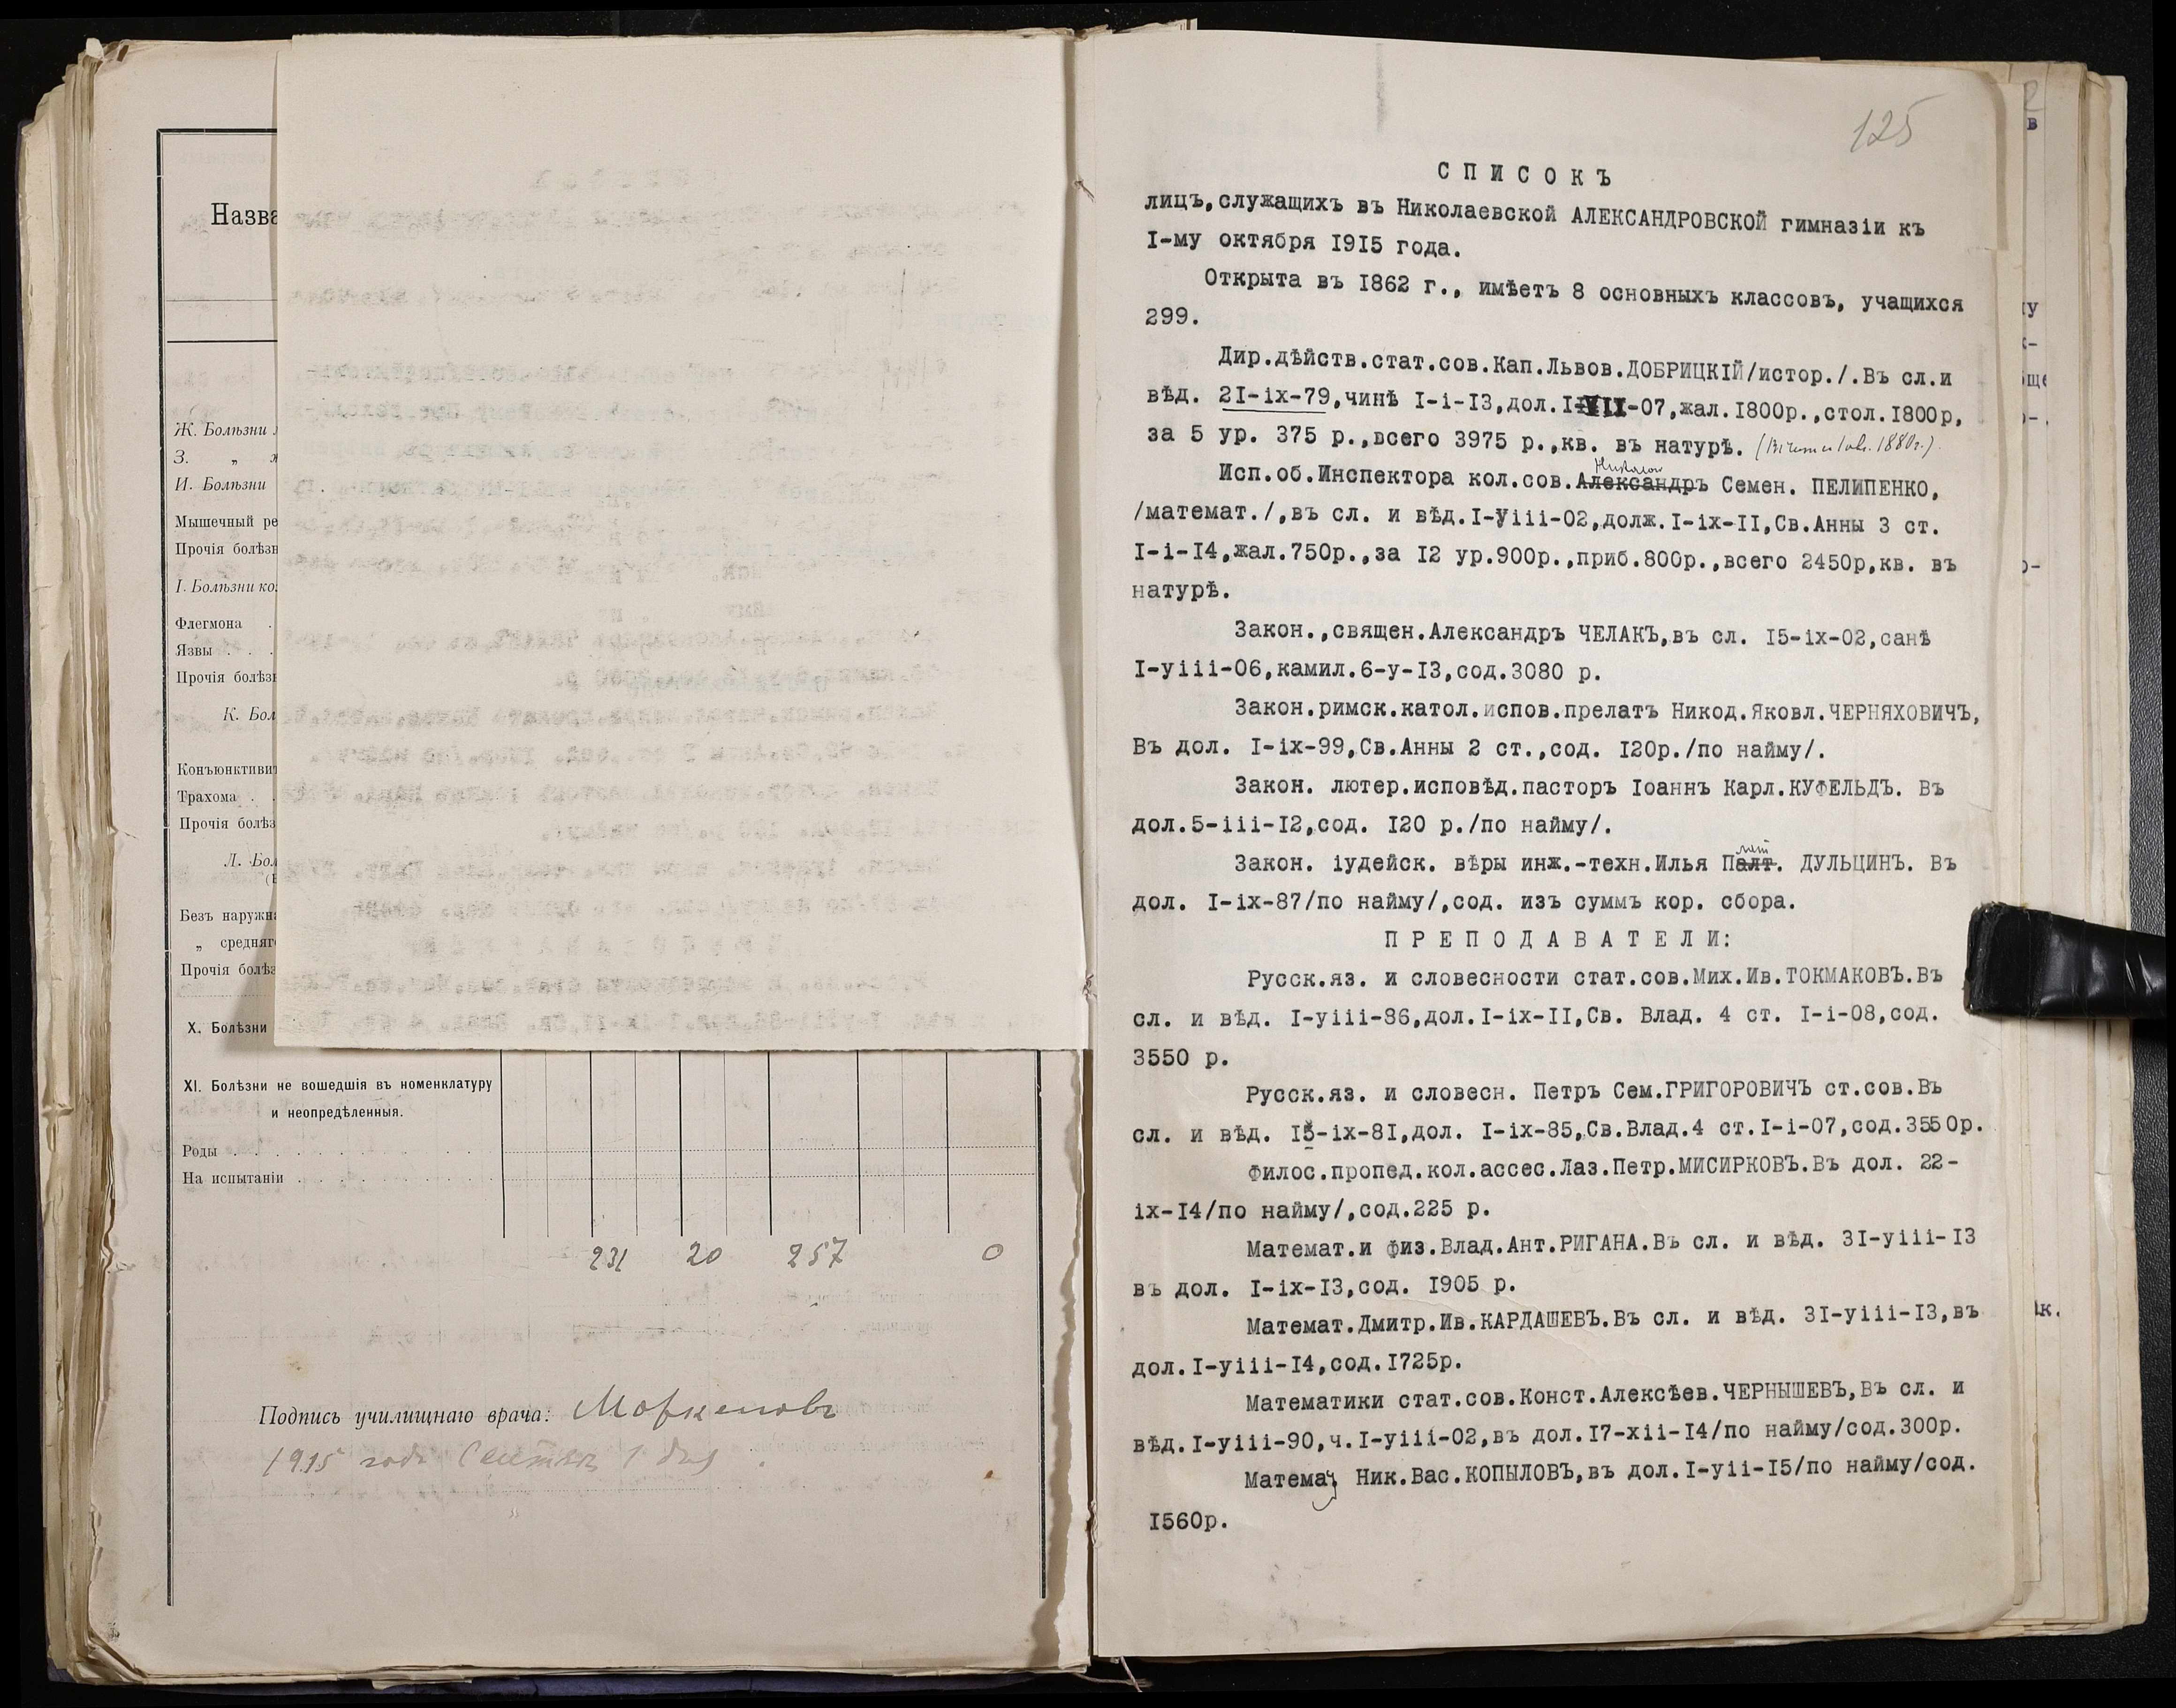 Назва
Ж. Болѣзни
З. „
И. Болѣзни
Мышечный ре
Прочія болѣзн
I. Болѣзни ко
Флегмона . .
Язвы . . .
Прочія болѣзн
К. Бол
Конъюнктивит
Трахома . .
Прочія болѣз
Л. Бол
Безъ наружн
„ средняг
Прочія болѣз
X. Болѣзни
XI. Болѣзни не вошедшія въ номенклатуру
и неопредѣленныя.
Роды
На испытаніи
231 20 257 0
Подпись училищнаго врача:
1915 года 1 дня
125
СПИСОКЪ
лицъ,служащихъ въ Николаевской АЛЕКСАНДРОВСКОЙ гимназіи къ
I-му октября 1915 года.
Открыта въ 1862 г., имѣетъ 8 основныхъ классовъ, учащихся
299.
Дир.дѣйств.стат.сов.Кап.Львов.ДОБРИЦКІЙ/истор./.Въ сл.и
вѣд. 2I-ix-79,чинѣ I-i-I3,дол.I-VII-07,жал.I800р.,стол.I800р,
за 5 ур. 375 р.,всего 3975 р.,кв. въ натурѣ. 1880г.).
Исп.об.Инспектора кол.сов.Александръ Семен. ПЕЛИПЕНКО,
/математ./,въ сл. и вѣд.I-Уiii-02,долж.I-ix-II,Св.Анны 3 ст.
I-i-I4,жал.750р.,за I2 ур.900р.,приб.800р.,всего 2450р,кв. въ
натурѣ.
Закон.,священ.Александръ ЧЕЛАКЪ,въ сл. I5-ix-02,санѣ
I-уiii-06,камил.6-у-I3,сод.3080 р.
Закон.римск.катол.испов.прелатъ Никод.Яковл.ЧЕРНЯХОВИЧЪ,
Въ дол. I-ix-99,Св.Анны 2 ст.,сод. I20р./по найму/.
Закон. лютер.исповѣд.пасторъ Іоаннъ Карл.КУФЕЛЬДЪ. Въ
дол.5-iii-I2,сод. I20 р./по найму/.
Закон. іудейск. вѣры инж.-техн.Илья Палт. ДУЛЬЦИНЪ. Въ
дол. I-ix-87/по найму/,сод. изъ суммъ кор. сбора.
ПРЕПОДАВАТЕЛИ:
Русск.яз. и словесности стат.сов.Мих.Ив.ТОКМАКОВЪ.Въ
сл. и вѣд. I-уiii-86,дол.I-ix-II,Св. Влад. 4 ст. I-i-08,сод.
3550 р.
Русск.яз. и словесн. Петръ Сем.ГРИГОРОВИЧЪ ст.сов.Въ
сл. и вѣд. I5-ix-8I,дол. I-ix-85,Св.Влад.4 ст.I-i-07,сод.3550р.
Филос.пропед.кол.ассес.Лаз.Петр.МИСИРКОВЪ.Въ дол. 22-
ix-I4/по найму/,сод.225 р.
Математ.и физ.Влад.Ант.РИГАНА.Въ сл. и вѣд. 3I-уiii-I3
въ дол. I-ix-I3,сод. I905 р.
Математ.Дмитр.Ив.КАРДАШЕВЪ.Въ сл. и вѣд. 3I-уiii-I3,въ
дол.I-уiii-I4,сод.I725р.
Математики стат.сов.Конст.Алексѣев.ЧЕРНЫШЕВЪ,въ сл. и
вѣд.I-уiii-90,ч.I-уiii-02,въ дол.I7-xii-I4/по найму/сод.300р.
Матема, Ник.Вас.КОПЫЛОВЪ,въ дол.I-уii-I5/по найму/сод.
I560р.